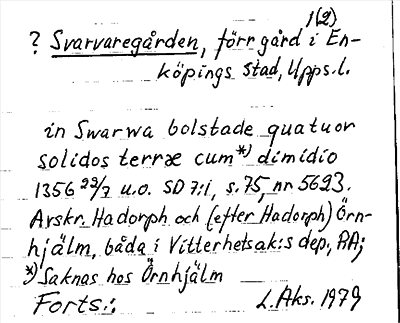 1(2)
? Svarvaregården, förr gård i En-
köpings stad, Upps.l.
in Swarwa bolstade quatuor
solidos terræ cum*) dimidio
1356 23/7 u.o. SD 7:1, s.75, nr 5623.
Avskr. Hadorph och (efter Hadorph) Örn-
hjälm, båda i Vitterhetsak:s dep., RA;
*) Saknas hos Örnhjälm
Forts.:, L.Aks. 1979